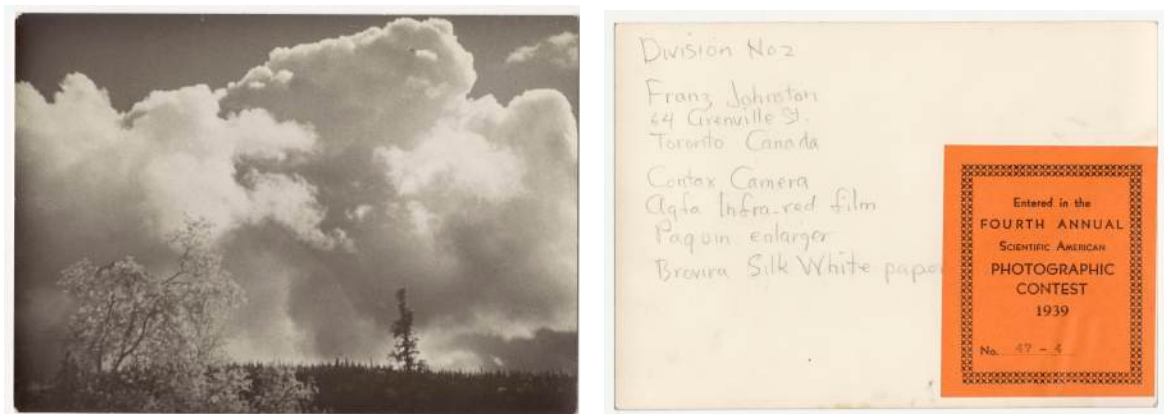 Division No 2
Franz Johnston
64 Grenville St.
Toronto Canada
Contax Camera
Agfa Infra-red film
Paquin enlarger
Brovira Silk White paper
Entered in the
FOURTH ANNUAL
SCIENTIFIC AMERICAN
PHOTOGRAPHIC
CONTEST
1939
No. 47 - 4